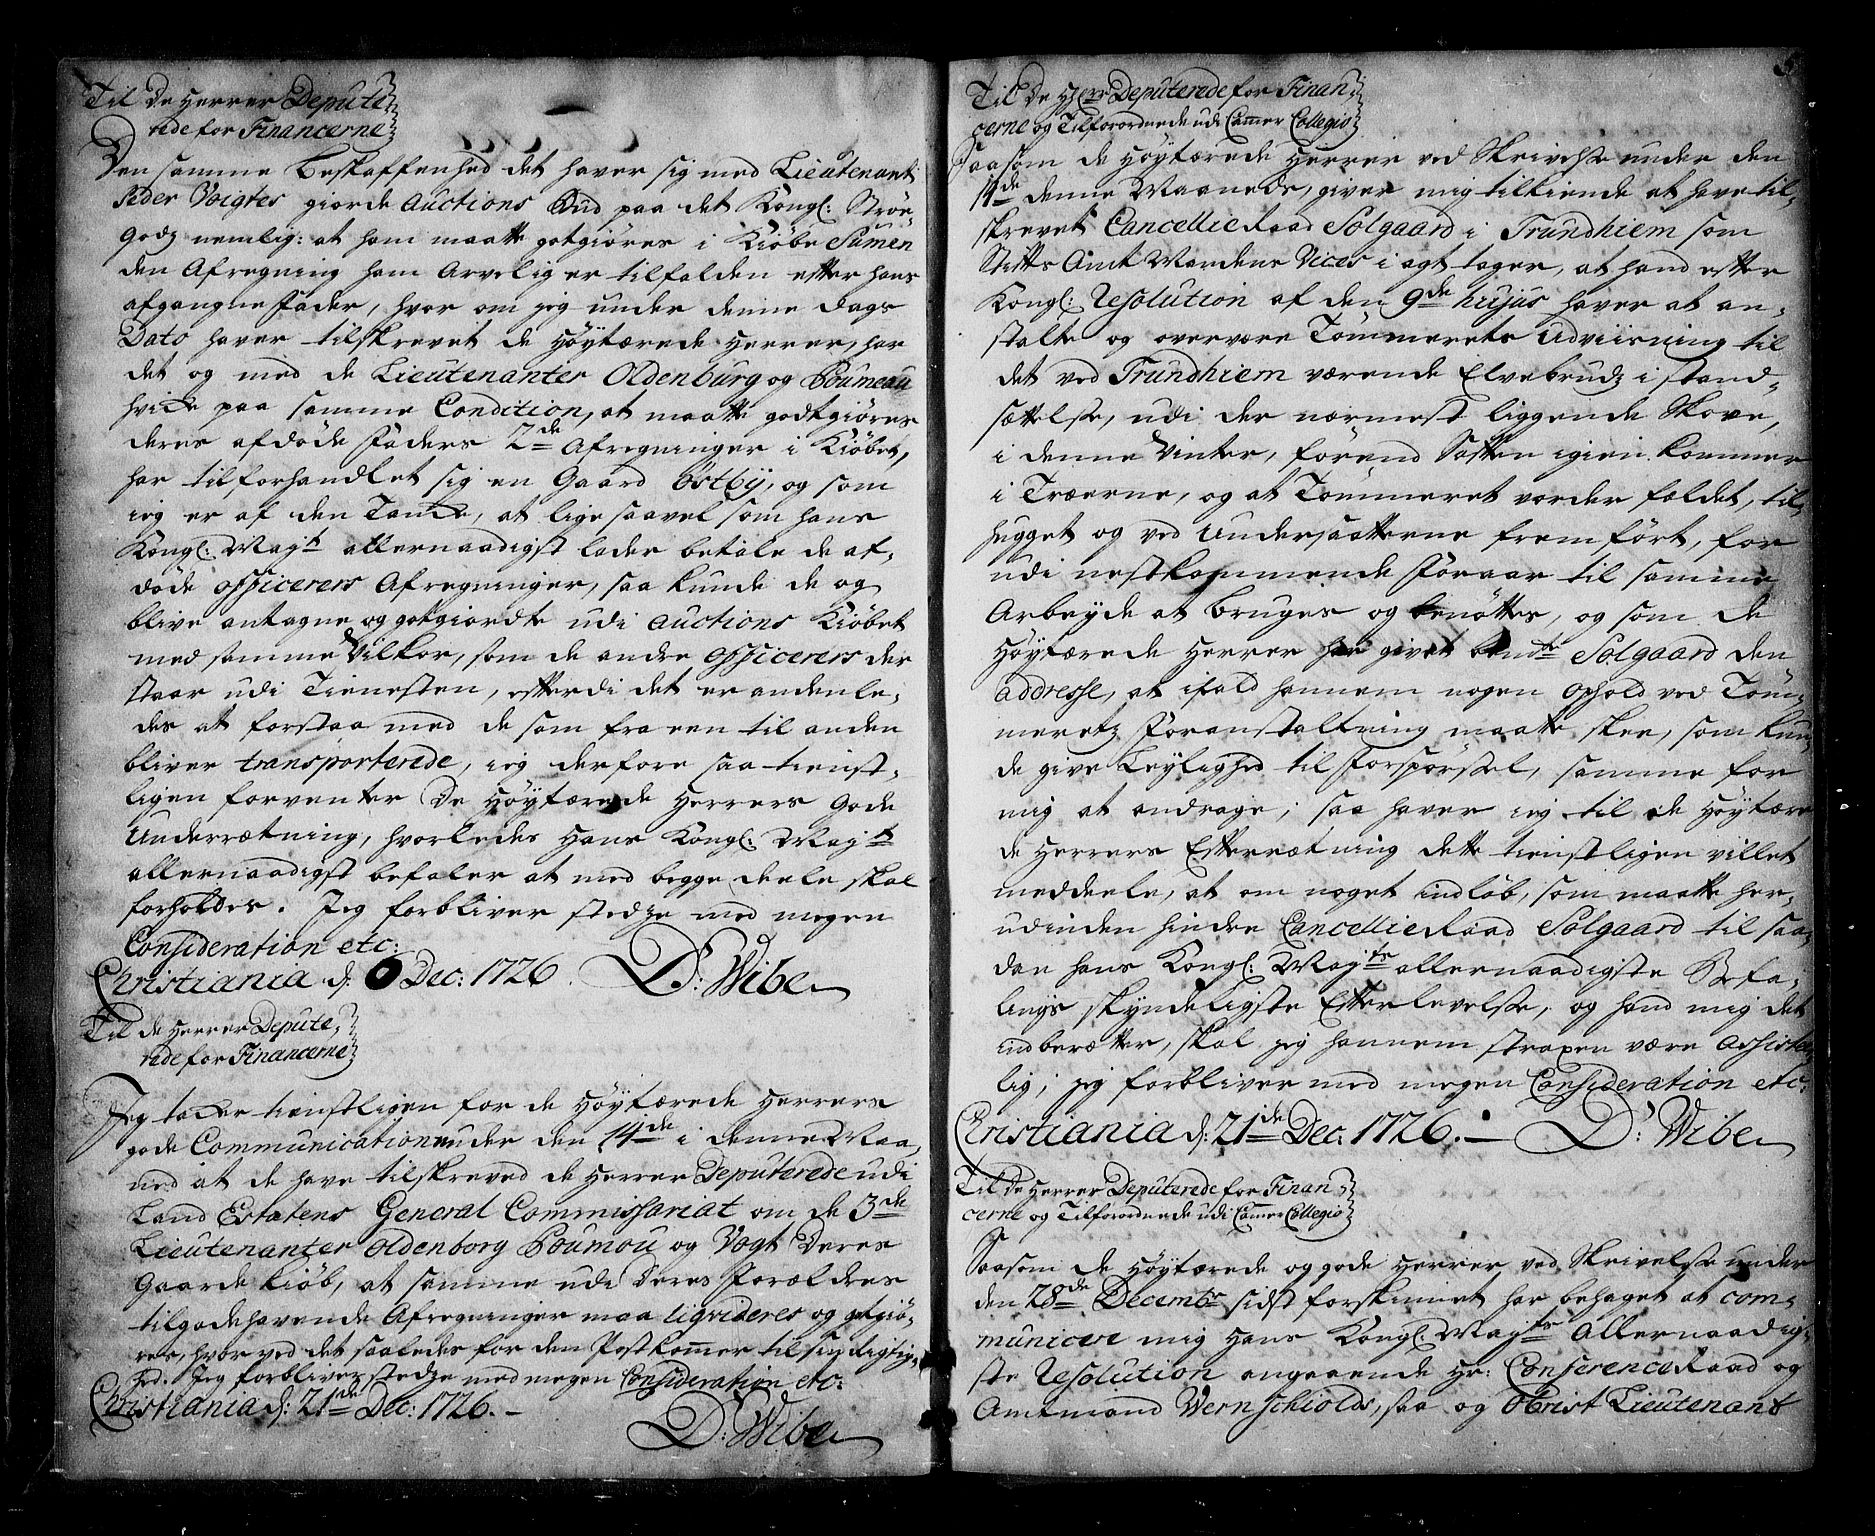 Til De Herrer Depute
rede for Financerne
Den samme beskaffenhed det haver sig med Lieutenant
Peder Voigtes giorde Auctions Bud paa det Kongl: Strøe-
Godz nemlig: at ham maatte gotgiøres i Kiøbe Sumen
den Afregning ham Arvelig er tilfalden efter hans
afgangne Fader, hvor om jeg under denne Dags
Dato haver tilskrevet de Høytærede Herrer, har
det og med de Lieutenanter Oldenburg og Poumeau
hvilke paa samme Condition, at maatte godtgiøres
deres afdøde Fäders 2de Afregninger i Kiøbet,
har tilforhandlet sig en Gaard Østby, og som
ieg er af den Tancke, at lige saavel som hans
Kongl: Mayt allernaadigst lader betale de af-
døde Officerers Afregninger, saa kunde de og
blive antagne og gotgiordte udi Auctions Kiøbet
med samme Vilkor, som de andre Officerers der
staar udi Tienesten, efterdi det er andenle-
des at forstaa med de som fra een til anden
bliver transporterede, ieg derfore saa tienst-
ligen forventer De Høytærede Herrers Gode
Underrætning, hvorledes Hans Kongl: Mayt
allernaadigst befaler at med begge deele skal
forholdes. Jeg forbliver stedze med megen
Consideration etc:
Christiania d: Dec: 1726. D: Wibe
Til de Herrer Depute,
rede for Financerne
Jeg tacker tienstligen for de Høytærede Herrers
gode Communication under den 14de i denne Maa,
ned at de have tilskreved de Herrer Deputerede udi
Land Estatens General Commissariat om de 3de
Lieutenanter Oldenborg Poumou og Vogt Deres
Gaarde Kiøb, at samme udi Deres Forældres
tilgodehavende Afregninger maa liqvideres og gotgiø-
res, hvor ved det saaledes for den Post kommer til sin Rigtig-
hed. Jeg forbliver stedze med megen Consideration etc:
Christiania d: 21de Dec: 1726. -
D: Wibe
Til De Herr Deputerede for Finan
cerne og Tilforordnede udi Cammer Collegio
Saasom de Høytærede Herrer ved Skrivelse under den
14de denne Maaneds, giver mig tilkiende at have til-
skrevet Cancellie Raad Solgaard i Trundhiem som
Stifts Amt Mandens Vices i agt tager, at hand efter
Kongl: Resolution af den 9de hujus haver at an-
stalte og overvære Tømmerets Udviisning til
det ved Trundhiem værende Elvebrudz i stand-
sættelse, udi der nærmest liggende Skove,
i denne Vinter, førend Saften igien kommer
i Træerne, og at Tømmeret vorder fældet, til-
hugget og ved Undersaatterne fremført, for
udi nestkommende Foraar til samme
Arbeyde at bruges og benøttes, og som de
Høytærede Herrer har givet bemte Solgaard den
addresse, at ifald hannem nogen Ophold ved Tøm-
meretz Foranstaltning maatte skee, som kun-
de give Leylighed til Forspørsel, samme for
mig at andrage; saa haver ieg til de Høytære
de Herrers Efterrætning dette tienstligen villet
meddeele, at om noget indløb, som maatte her-
udinden hindre Cancellie Raad Solgaard til saa-
dan hans Kongl: Mayts allernaadigste Befa-
lings skyndeligste Efterlevelse, og hand mig det
indberætter, skal jeg hannem straxen være assiste
lig; jeg forbliver med megen Consideration etc:
Christiania d: 21de Dec: 1726. - D: Wibe
Til De Herrer Deputerede for Finan
cerne og Tilforordnede udi Cammer Collegio
Saasom de Høytærede og gode Herrer ved Skrivelse under
den 28de Decembr sidst forskinnet har behaget at com-
municere mig Hans Kongl: Mayts Allernaadig-
ste Resolution angaaende Hr: Conference Raad og
Amtmand Vernschiolds, saa og Obrist Lieutenant